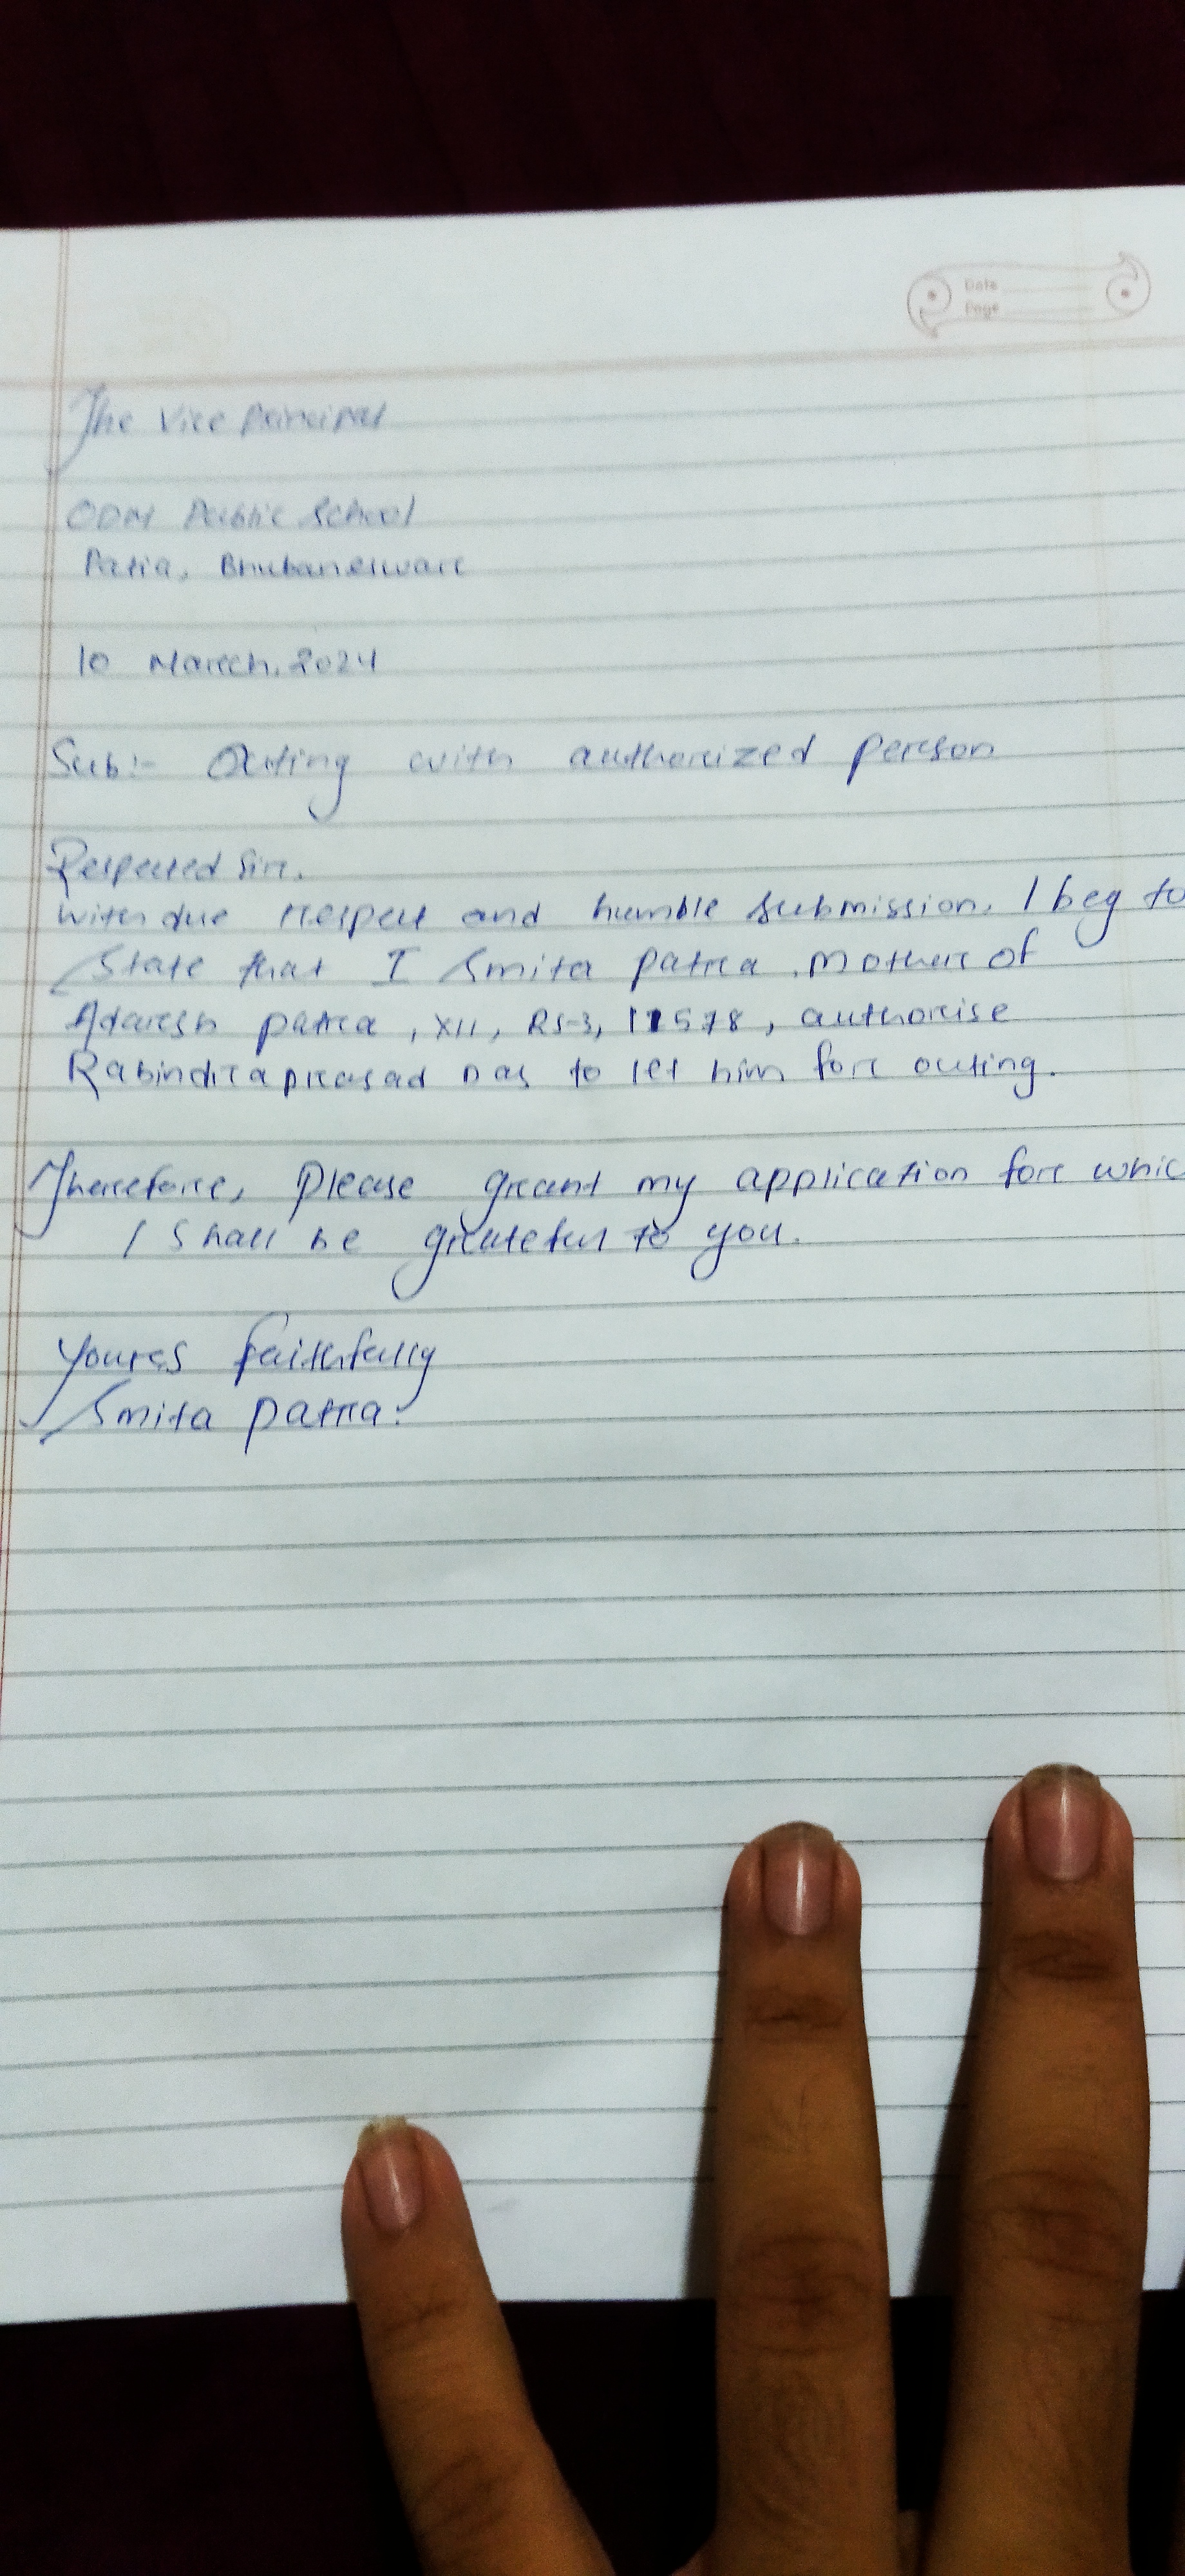 Date
Page
The Vice Principal
ODM Public School
Patia, Bhubaneswar
10 March, 2024
Sub:- Outing with authorized person
Respected Sir,
With due respect and humble submission, I beg to
State that I Smita patra, Mother of
Adarsh patra, XII, RS-3, 11578, authorise
Rabindraprasad Das to let him for outing.
Therefore, Please grant my application for whic
I Shall be grateful to you.
Yours faithfully
Smita patra.